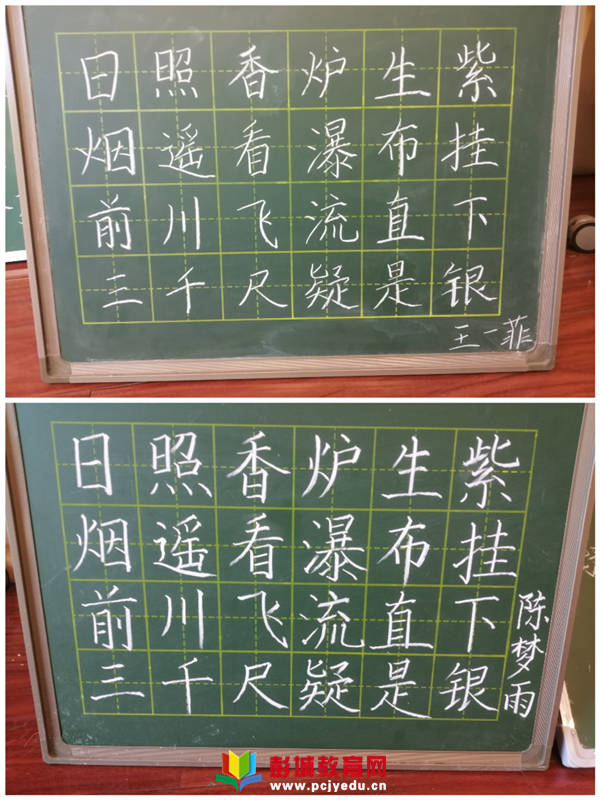 日照香炉生紫
烟遥看瀑布挂
前川飞流直下
三千尺疑是银
王一菲
日照香炉生紫
烟遥看瀑布挂
前川飞流直下
三千尺疑是银
陈梦雨
彭城教育网
www.pcjyedu.cn